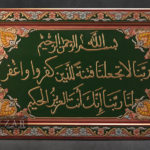 بسم الله الرحمن الرحيم
ربنا لا تجعلنا فتنة للذين كفروا واغفر
لنا ربنا إنك أنت العزيز الحكيم